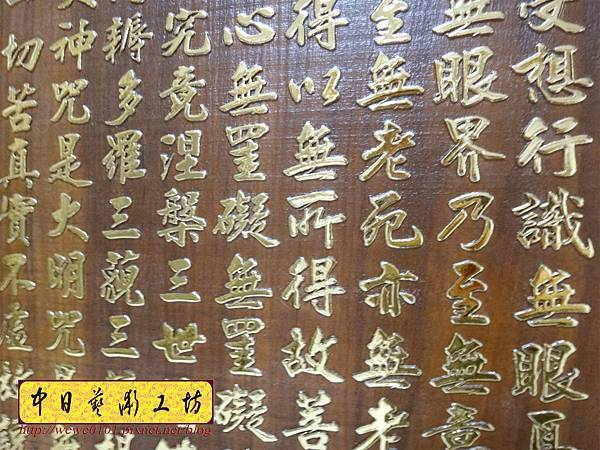 受想行識無眼耳
無眼界乃至無意
至無老死亦無老
得以無所得故菩
心無罣礙無罣礙
究竟涅槃三世
耨多羅三藐三
神咒是大明咒是
切苦真實不虛故
中日藝彫工坊
http://wewe0101.pixnet.net/blog